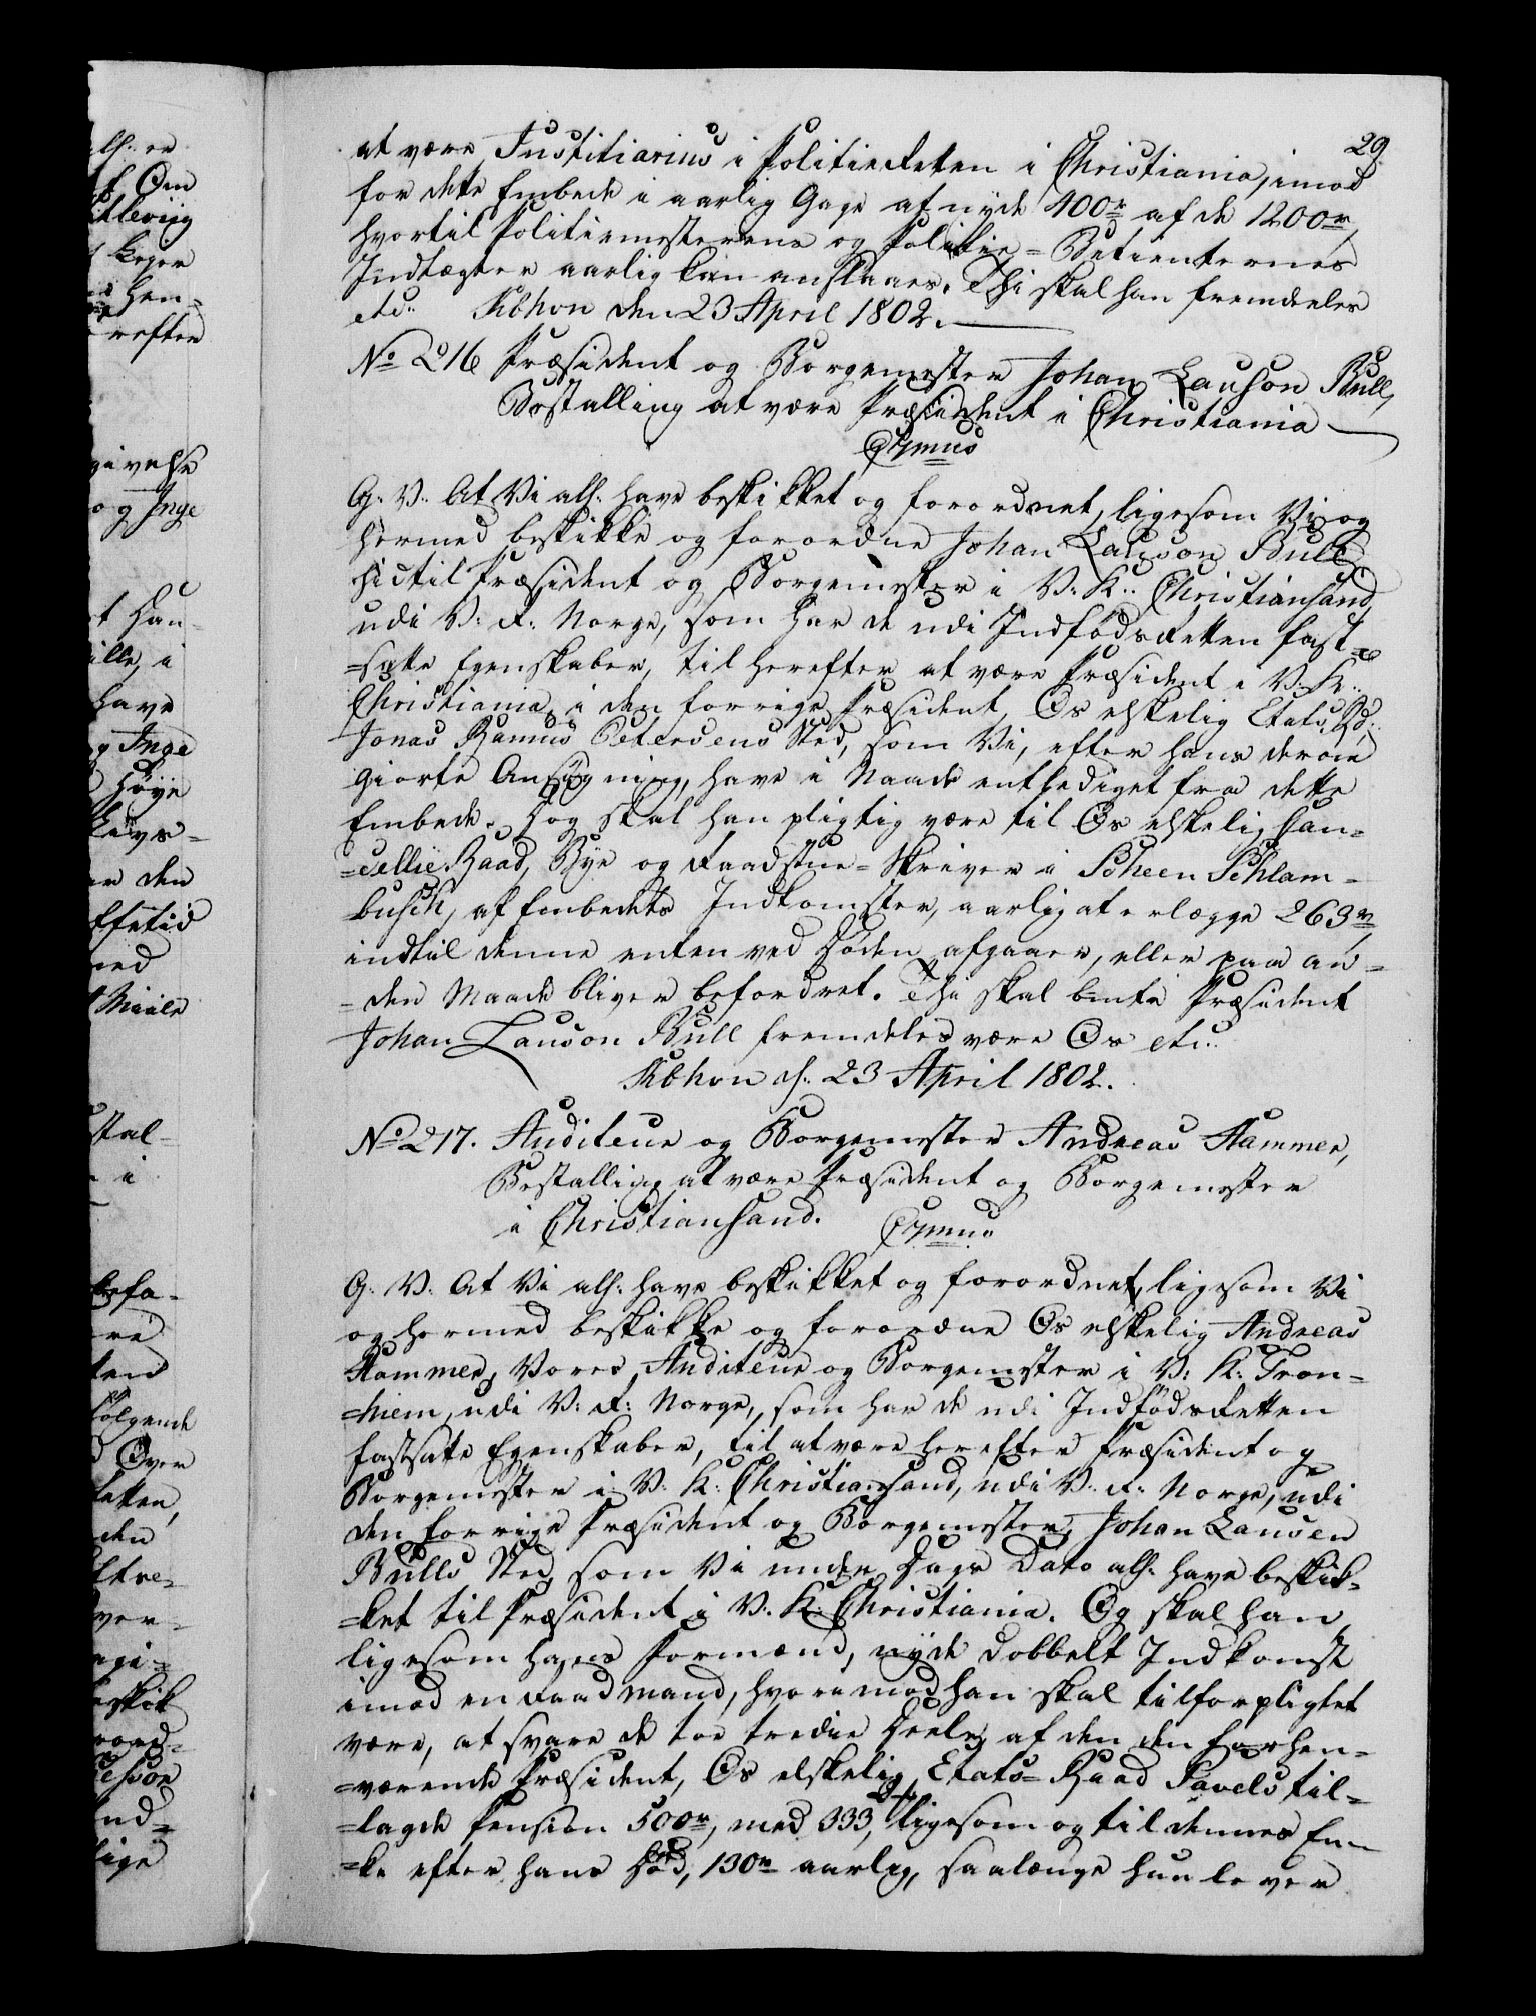 29.
at være Justitiarius i Politieretten i Christiania, imod
for dette Embede i aarlig Gage at nyde 400r af de 1200r,
hvortil Politiemesterens og Politie-Betienternes
Indtægter aarlig kan anslaaes. Thi skal han fremdeeles
etc. Kbhvn den 23 April 1802.
No 216 Præsident og Borgemester Johan Lauson Bull,
Bestalling at være Præsident i Christiania
C7mus
G. V. At Vi alh: have beskikket og forordnet, ligesom Vi og
hermed beskikke og forordne Johan Lauson Bull,
hidtil Præsident og Borgemester i V. K. Christiansand,
udi V. R. Norge, som har de udi Indfødsretten fast-
=satte Egenskaber, til herefter at være Præsident i V. K.
Christiania, i den forrige Præsident, Os elskelig Etats Rd:
Jonas Ramus Petersens Sted, som Vi, efter hans derom
giorte Ansøgning, have i Naade entlediget fra dette
Embede. Dog skal han pligtig være til Os elskelig Can-
=cellie Raad, Bye og Raadstue-Skriver i Scheen Schlam-
busch, af Embedets Indkomster, aarlig at erlægge 263r,
indtil denne enten ved Døden afgaaer, eller paa an-
=den Maade bliver befordret. Thi skal bemte Præsident
Johan Lauson Bull fremdeles være Os etc.
Kbhvn d: 23 April 1802.
No 217. Auditeur og Borgemester Andreas Hammer,
Bestalling at være Præsident og Borgemester
i Christiansand. C7mus
G. V. At Vi alh: have beskikket og forordnet, ligesom Vi
og hermed beskikke og forordne Os elskelig Andreas
Hammer, Vores Auditeur og Borgemester i V. K. Tron-
=hiem, udi V. R. Norge, som har de udi Indfødsretten
fastsatte Egenskaber, til at være herefter Præsident og
Borgemester i V. K. Christiansand, udi V. R. Norge, udi
den forrige Præsident og Borgemester, Johan Lausen
Bulls Sted, som Vi under Dags Dato alh: have beskik-
=ket til Præsident i V. K. Christiania. Og skal han
ligesom hans Formænd, nyde dobbelt Indkomst
imod en Raadmand, hvorimod han skal tilforpligtet
være, at svare de toe tredie Deele af den den forhen-
=værende Præsident, Os elskelig Etats-Raad Pavels til-
=lagde Pension 500r, med 333, ligesom og til dennes En-
=ke efter hans Død, 130r aarlig, saalænge hun lever